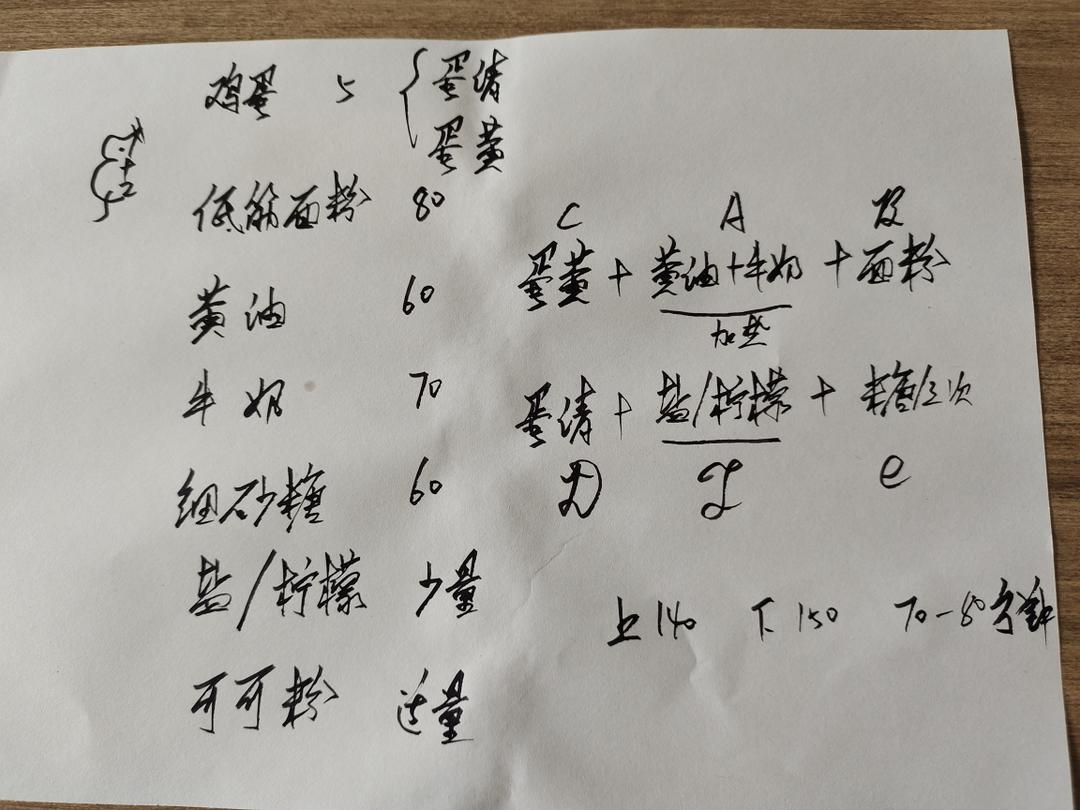 鸡蛋 5 { 蛋清
蛋黄
低筋面粉 80
黄油 60
牛奶 70
细砂糖 60
盐/柠檬 少量
可可粉 适量
C A B
蛋黄 + 黄油+牛奶 + 面粉
加热
蛋清 + 盐/柠檬 + 糖/三次
D e
上140 下150 70-80分钟